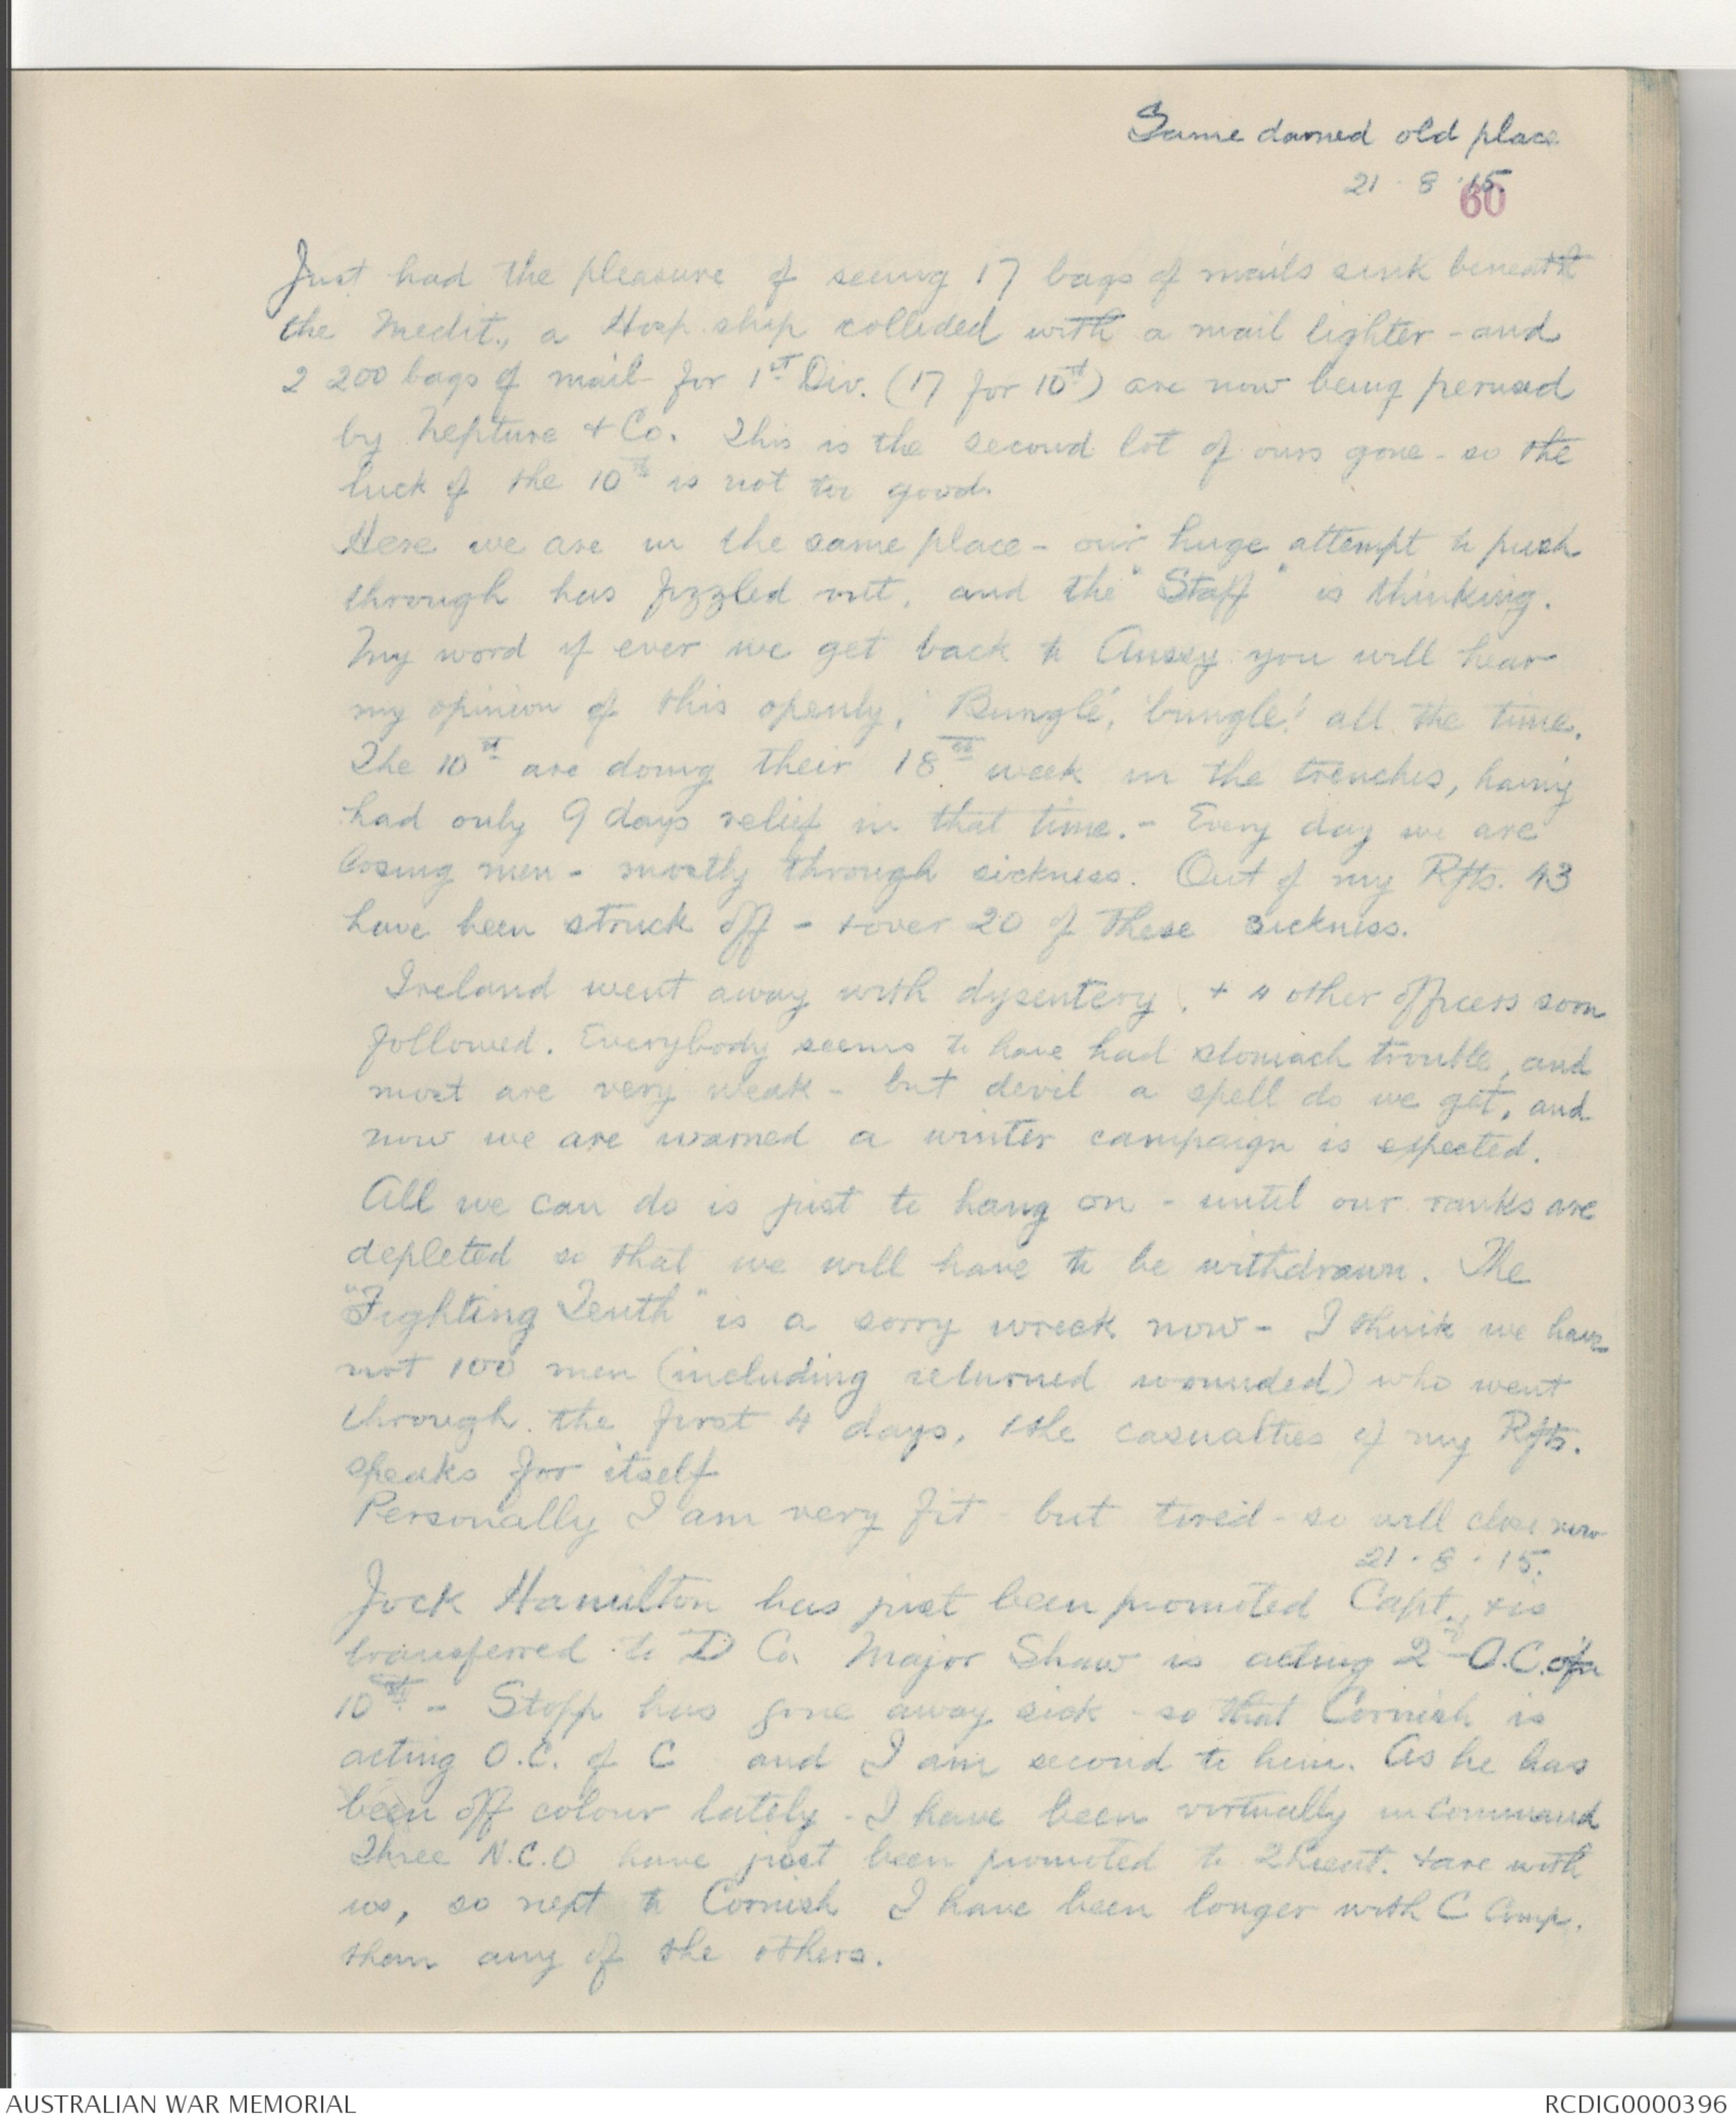 Same darned old place
21 · 8 · 15.
60
Just had the pleasure of seeing 17 bags of mails sink beneath
the Medit., a Hosp. ship collided with a mail lighter - and
2 200 bags of mail for 1st Div. (17 for 10th) are now being perused
by Neptune & Co. This is the second lot of ours gone - so the
luck of the 10th is not too good.
Here we are in the same place - our huge attempt to push
through has fizzled out, and the "Staff" is thinking.
My word if ever we get back to Aussy you will hear
my opinion of this openly, 'Bungle', 'bungle' all the time.
The 10th are doing their 18th week in the trenches, having
had only 9 days relief in that time. - Every day we are
losing men - mostly through sickness. Out of my Rfts. 43
have been struck off - & over 20 of these sickness.
Ireland went away with dysentery, & 4 other officers soon
followed. Everybody seems to have had stomach trouble, and
most are very weak - but devil a spell do we get, and
now we are warned a winter campaign is expected.
All we can do is just to hang on - until our ranks are
depleted so that we will have to be withdrawn. The
"Fighting Tenth" is a sorry wreck now - I think we have
not 100 men (including returned wounded) who went
through the first 4 days, & the casualties of my Rfts.
speaks for itself
Personally I am very fit - but tired - so will close now
21 · 8 · 15.
Jock Hamilton has just been promoted Capt., & is
transferred to D Co. Major Shaw is acting 2nd O.C. of
10th - Stopp has gone away sick - so that Cornish is
acting O.C. of C and I am second to him. As he has
been off colour lately - I have been virtually in command
Three N.C.O have just been promoted to 2 Lieut. & are with
us, so next to Cornish I have been longer with C Comp.
than any of the others.
AUSTRALIAN WAR MEMORIAL
RCDIG0000396